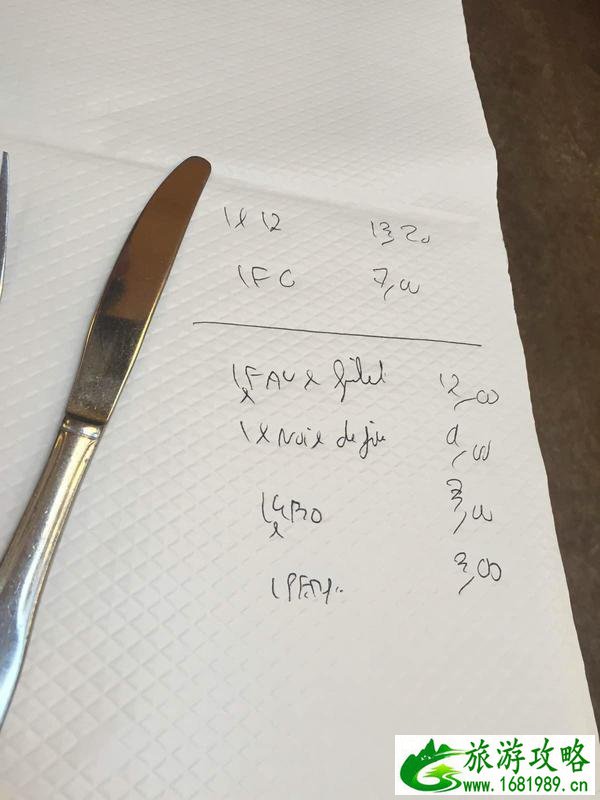 1 x 12 13,20
1 F C 7,00
1 FAUX filet 12,00
1 x Noix de 9,00
3,00
3,00
旅游攻略
www.1681989.cn